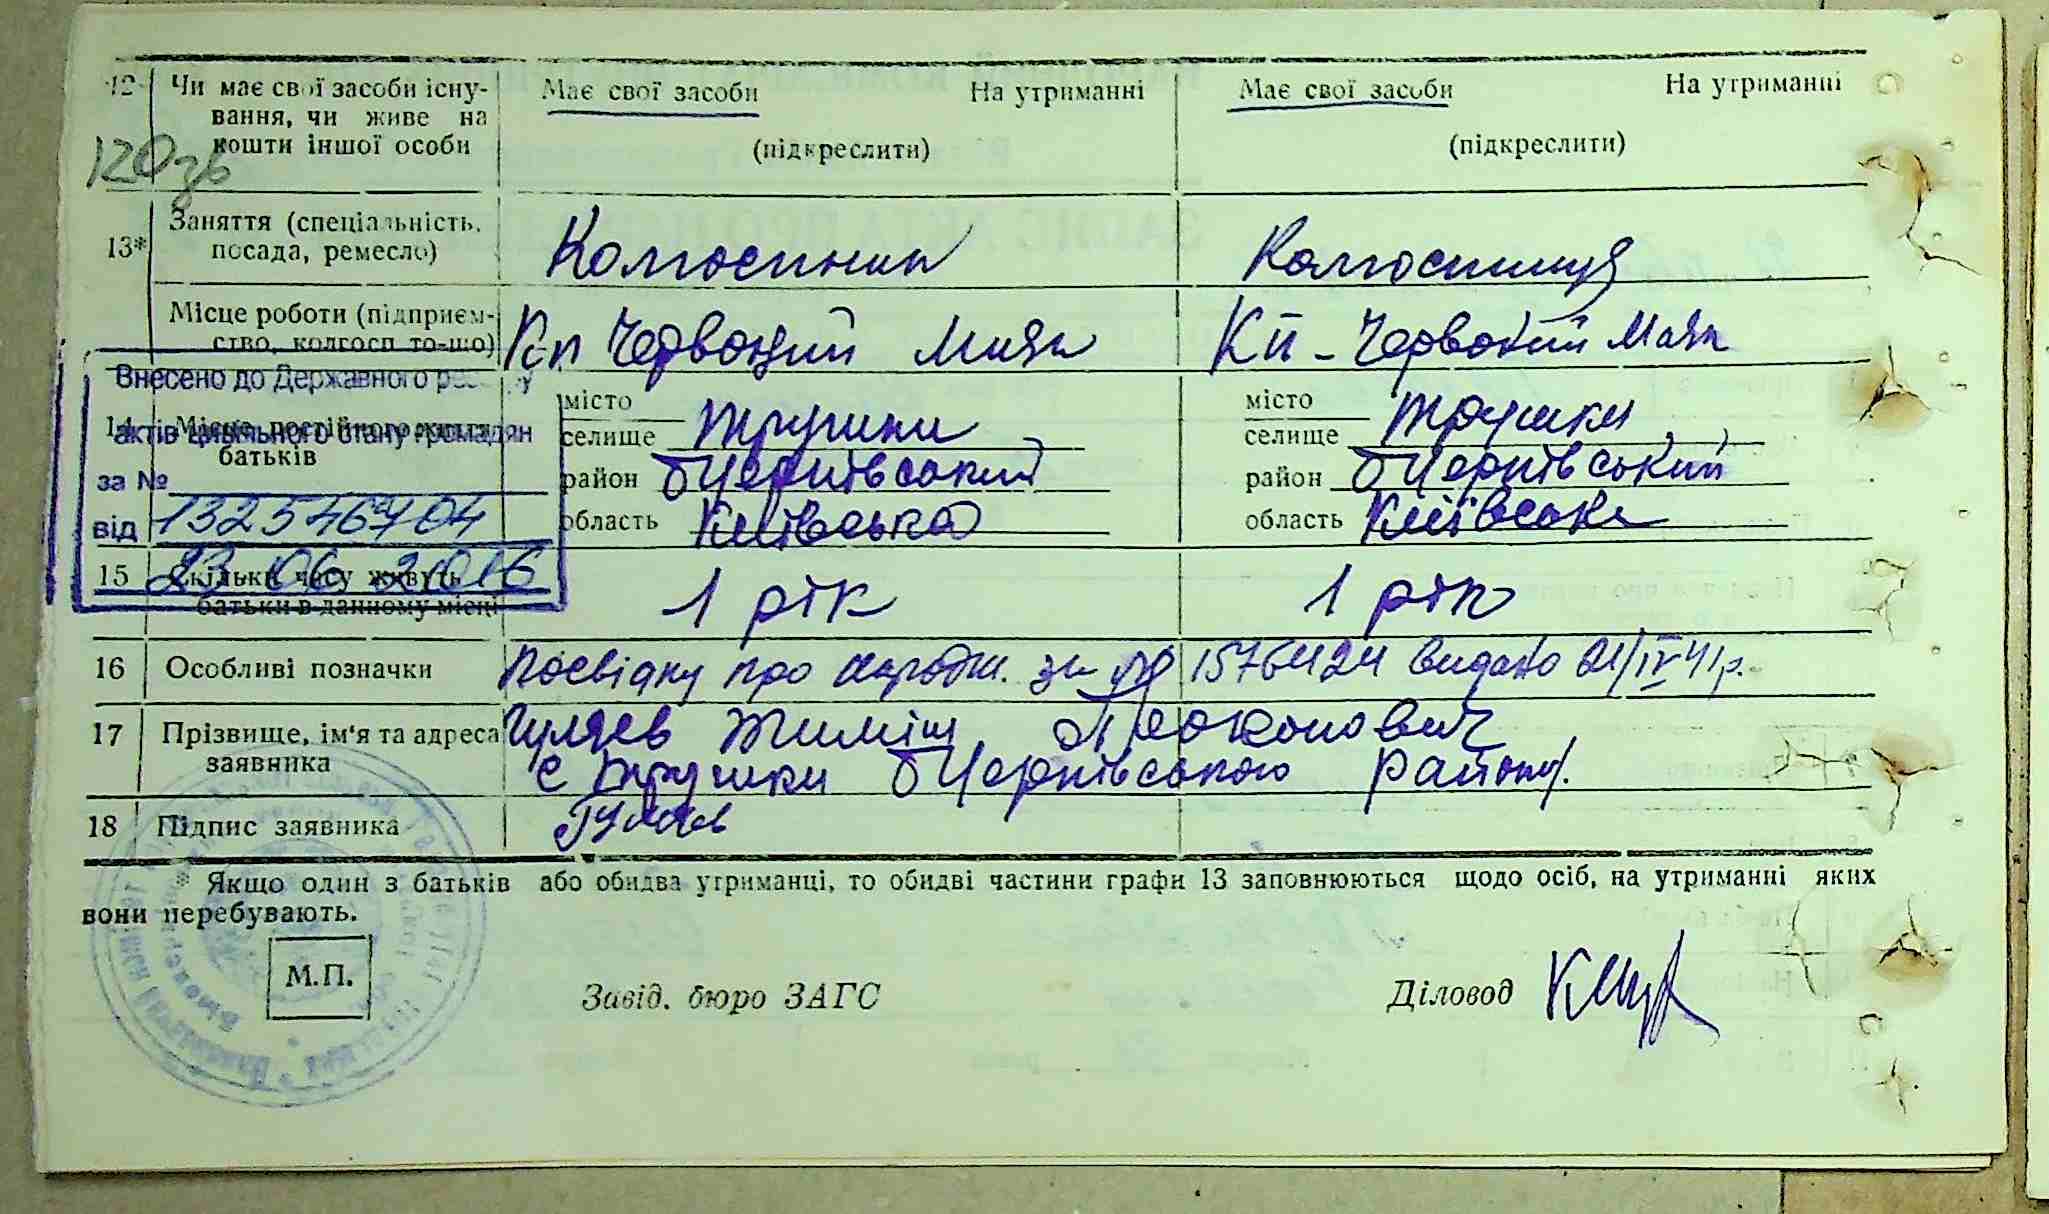 12 Чи має свої засоби існу- Має свої засоби На утриманні Має свої засоби На утриманні
вання, чи живе на
кошти іншої особи (підкреслити) (підкреслити)
120зв
13* Заняття (спеціальність, посада, ремесло) Колгоспник Колгоспниця
Місце роботи (підприєм- Кп Червоний Маяк Кп - Червоний Маяк
ство, колгосп то-що)
Внесено до Державного реєстру
актів цивільного стану громадян
за № 1325467704
від 23 06 2016
14 Місце постійного життя
батьків
місто місто
селище Трушки селище Трушки
район БЦерківський район БЦерківський
область Київська область Київська
15 Скільки часу живуть 1 рік 1 рік
батьки в данному місці
16 Особливі позначки Посвідку про народж. за № 1576424 видано 21/IV 41р.
17 Прізвище, ім'я та адреса Гуляев
заявника с Трушки БЦерківського району.
18 Підпис заявника Гуляев
* Якщо один з батьків або обидва утриманці, то обидві частини графи 13 заповнюються щодо осіб, на утриманні яких
вони перебувають.
М.П.
Завід. бюро ЗАГС Діловод